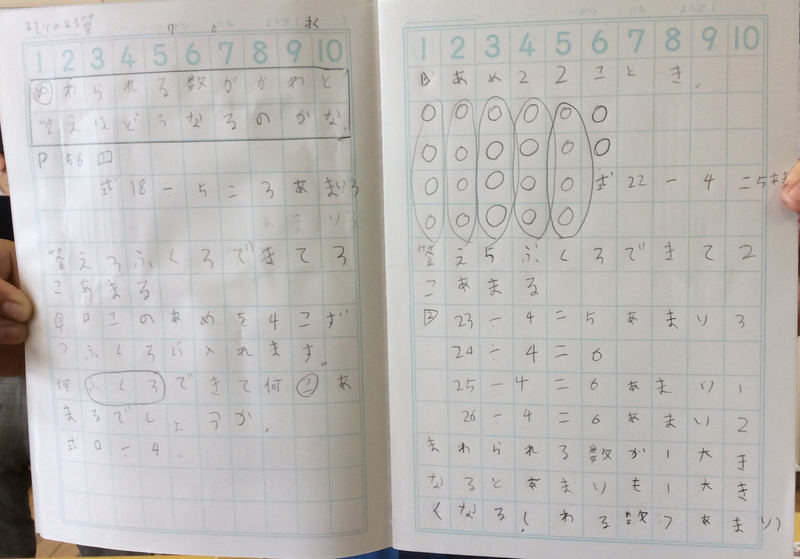 1 2 3 4 5 6 7 8 9 10
め わられる数がかわと
答えはどうなるのかな。
P 56 1
式 18÷5=3あまり3
あまり3
答え3ふくろできて3
こあまる
Q □このあめを4こず
つふくろに入れます。
何ふくろできて何こあ
まるでしょうか。
式□÷4、
1 2 3 4 5 6 7 8 9 10
あめ22ことき。
式 22÷4=5あま
答え5ふくろできて2
こあまる
2 23÷4=5あまり3
24÷4=6
25÷4=6あまり1
26÷4=6あまり2
まわられる数が1大き
なるとあまりも1大き
くなる!わる数7あまり